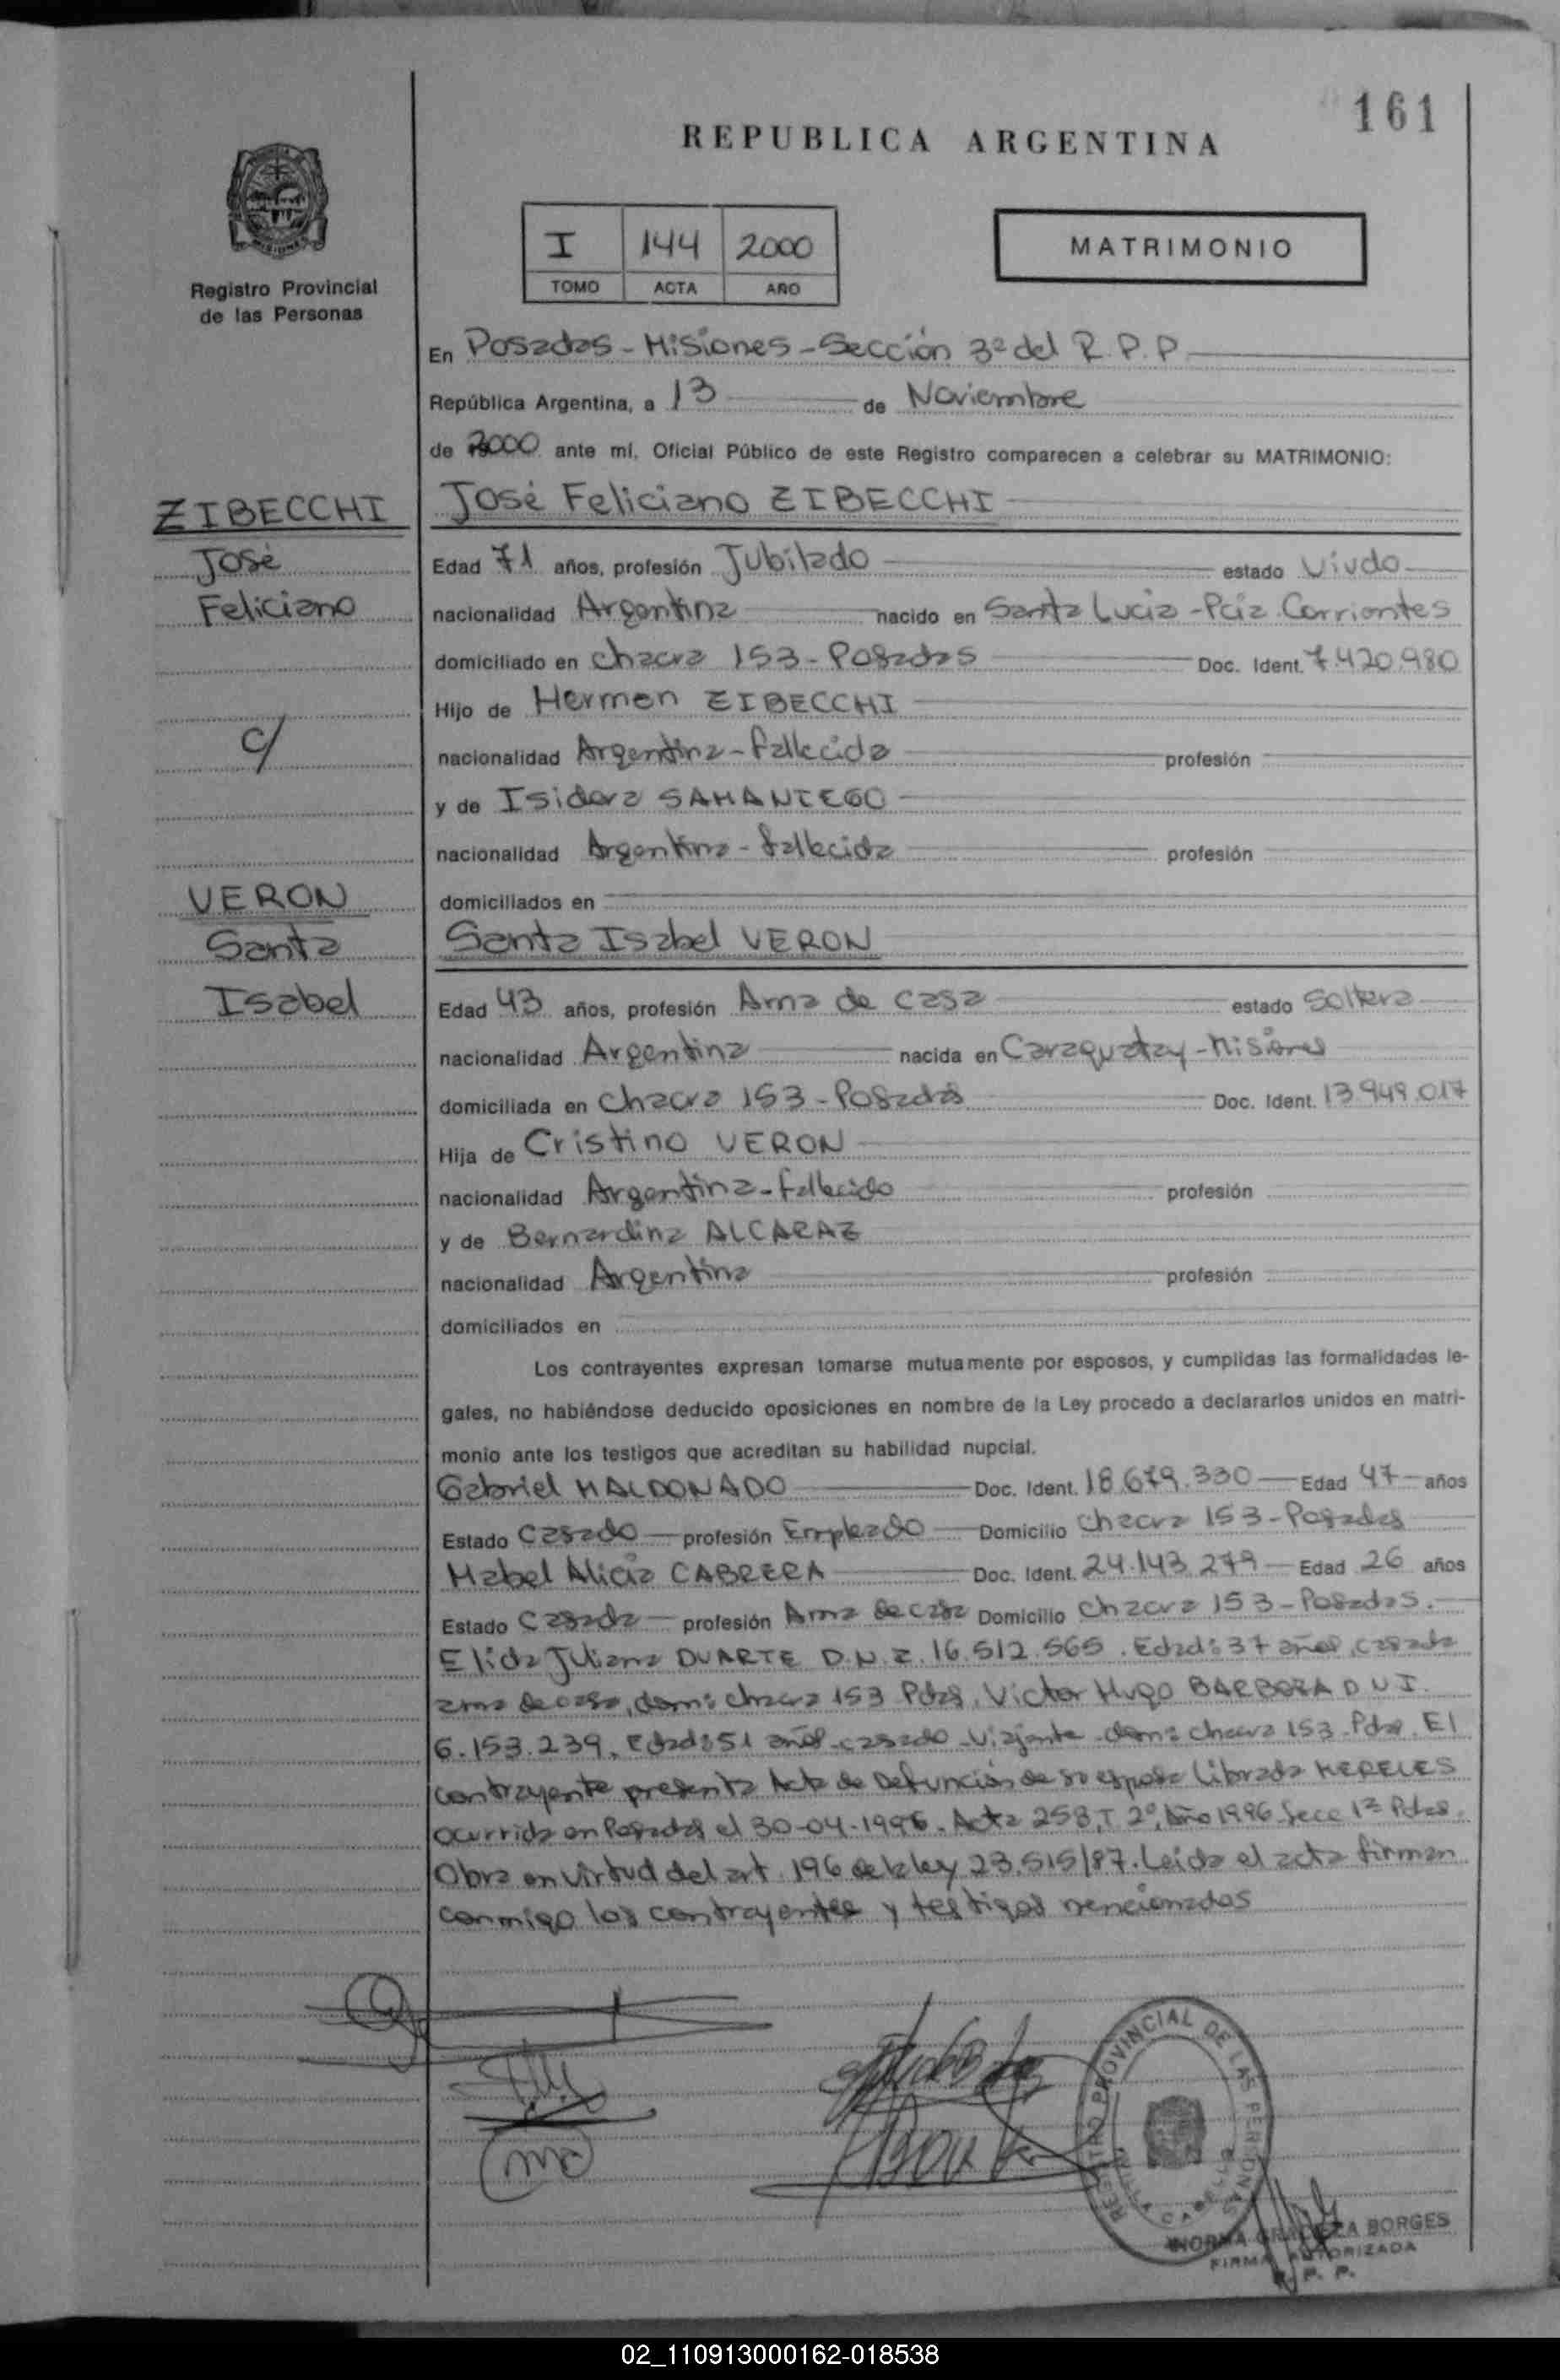 161
REPUBLICA ARGENTINA
I 144 2000
TOMO ACTA AÑO
MATRIMONIO
Registro Provincial
de las Personas
En Posadas - Misiones - Sección 3ª del R.P.P
República Argentina, a 13 de Noviembre
de 2000 ante mí, Oficial Público de este Registro comparecen a celebrar su MATRIMONIO:
ZIBECCHI
José
Feliciano
c/
VERON
Santa
Isabel
José Feliciano ZIBECCHI
Edad 71 años, profesión Jubilado estado Viudo
nacionalidad Argentina nacido en Santa Lucia - Pcia. Corrientes
domiciliado en chacra 153 - Posadas Doc. Ident. 7.420.980
Hijo de Hermen ZIBECCHI
nacionalidad Argentina - fallecido profesión
y de Isidora SAMANIEGO
nacionalidad Argentina - fallecida profesión
domiciliados en
Santa Isabel VERON
Edad 43 años, profesión Ama de casa estado Soltera
nacionalidad Argentina nacida en Caraguatay - Misiones
domiciliada en chacra 153 - Posadas Doc. Ident. 13.949.017
Hija de Cristino VERON
nacionalidad Argentina - fallecido profesión
y de Bernardina ALCARAZ
nacionalidad Argentina profesión
domiciliados en
Los contrayentes expresan tomarse mutuamente por esposos, y cumplidas las formalidades le-
gales, no habiéndose deducido oposiciones en nombre de la Ley procedo a declararlos unidos en matri-
monio ante los testigos que acreditan su habilidad nupcial.
Gabriel MALDONADO Doc. Ident. 18.679.330 Edad 47 años
Estado Casado profesión Empleado Domicilio chacra 153 - Posadas
Mabel Alicia CABRERA Doc. Ident. 24.143.279 Edad 26 años
Estado Casada profesión Ama de casa Domicilio chacra 153 - Posadas.
Elida Juliana DUARTE D.N.I. 16.512.565. Edad: 37 años, casada
ama de casa, dom: chacra 153 Pdas, Victor Hugo BARBOZA D N I.
6.153.239. Edad: 51 años - casado - Viajante - dom: chacra 153 - Pdas. El
contrayente presenta Acta de Defunción de su esposa Librada MERELES
ocurrida en Posadas el 30-04-1996. Acta 258, T 2º, Año 1996 Secc 1ª Pdas.
Obra en virtud del art. 196 de la ley 23.515/87. Leida el acta firman
conmigo los contrayentes y testigos mencionados
REGISTRO PROVINCIAL DE LAS PERSONAS
NORMA GRACIELA BORGES
FIRMA AUTORIZADA
R. P. P.
02_110913000162-018538